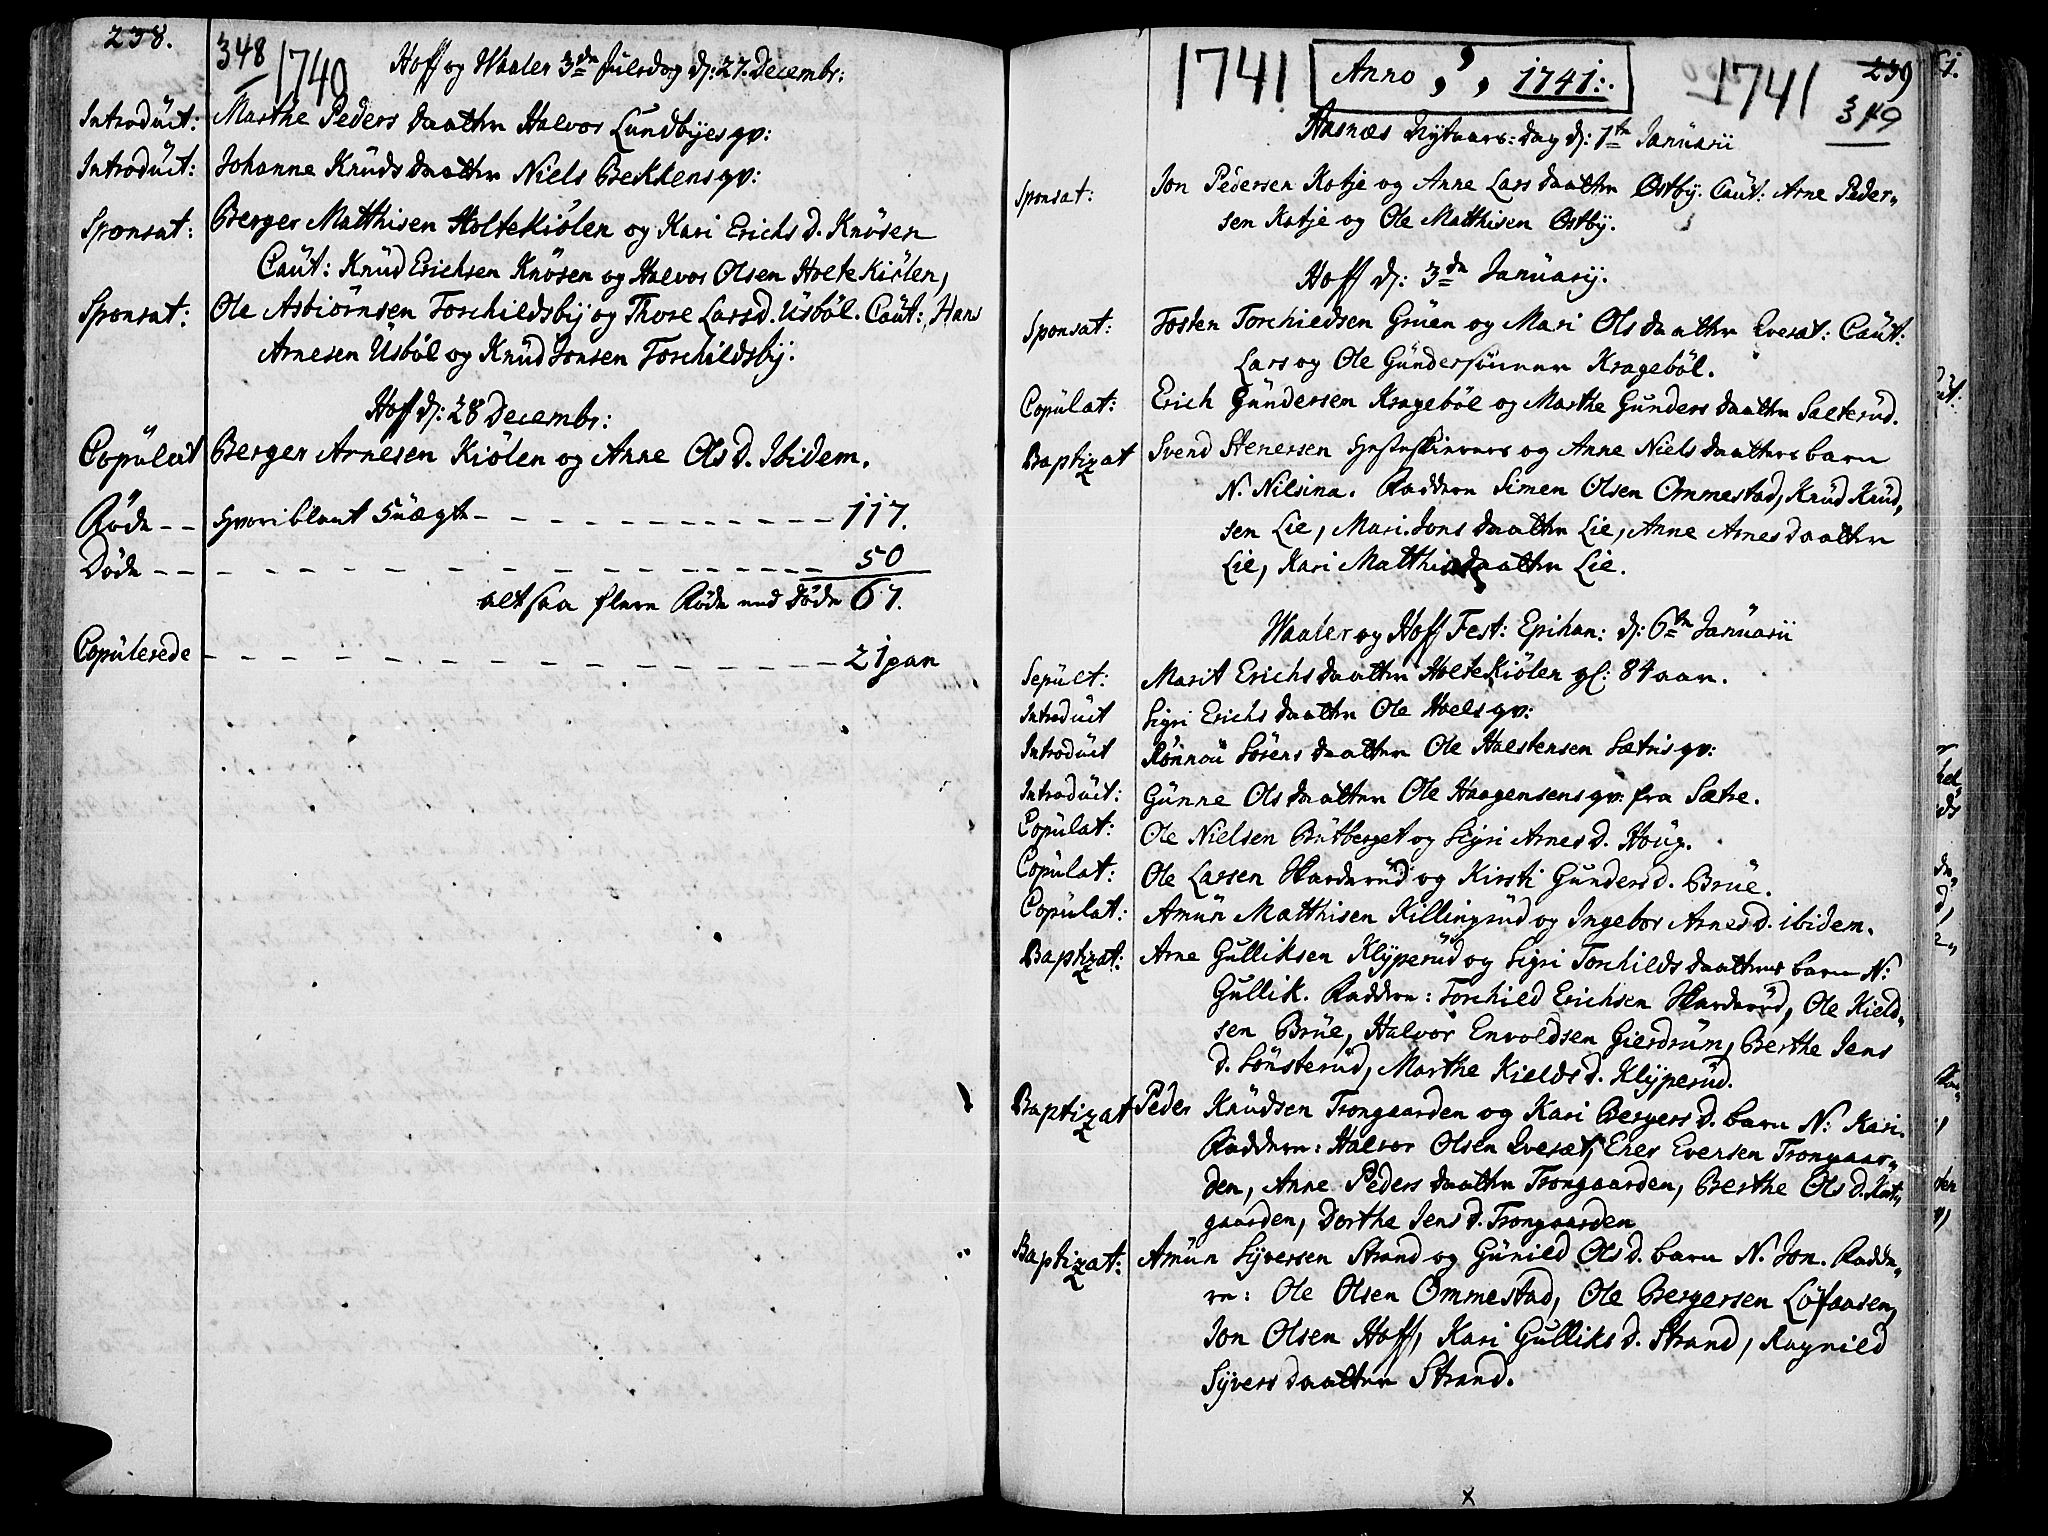 238.
348
1740
Hoff og Waaler 3de Juledag d: 27. Decembr:
Introdüit: Marthe Peders daatter Halvor Lundbyes qv:
Introdüit: Johanne Knüds daatter Niels Bekkens qv:
Sponsat: Berger Matthisen Holtekiölen og Kari Erichs d. Knösen
Caüt: Knüd Erichsen Knösen og Halvor Olsen Holtekiölen,
Sponsat: Ole Asbiörnsen Torchildsbÿ og Thore Larsd. Üsböl. Caüt: Hans
Arnesen Üsböl og Knüd Jonsen Torchildsbÿ.
Hoff d: 28 Decembr:
Copülat Berger Arnesen Kiölen og Anne Ols d. Ibidem.
Födte -- hvoriblant 5 üægte - - - - - - - - - - 117.
Döde - - - - - - - - - - - - - - - 50
altsaa flere Födte end döde 67.
Copülerede - - - - - - - - - - - - - - 21 par
1741 Anno , , 1741:. 1741
239
349
Aasnæs Nytaars: dag d: 1te Janüarii
Sponsat: Jon Pedersen Kotje og Anne Lars daatter Østbÿ. Caüt: Arne Peder-
sen Kotje og Ole Matthisen Østbÿ.
Hoff d: 3de Janüarij.
Sponsat: Tosten Torchieldsen Grüen og Mari Ols daatter Qvesæt: Caüt:
Lars og Ole Gündersönner Krageböl.
Copülat: Erich Gündersen Krageböl og Marthe Gunders daatter Sæterüd.
Baptizat Svend Stenersen og Anne Niels daatters barn
N. Nilsina. Faddere Simen Olsen Ommestad, Knüd Knüd-
sen Lie, Mari Jons daatter Lie, Anne Arnes daatter
Lie, Kari Matthis daatter Lie.
Waaler og Hoff Fest: Epihan: d: 6te Janüarii
Sepült: Marit Erichs daatter Holtekiölen gl: 84 aar.
Introdüit Sigri Erichs daatter Ole Hoels qv:
Introdüit Rönnoü Sörens daatter Ole Halstensen Sætris qv:
Introdüit: Günne Ols daatter Ole Haagensens qv: fra Sætre.
Copülat: Ole Nielsen Brütberget og Sigri Arnes d. Houg.
Copülat: Ole Larsen Skarderüd og Kirsti Gunders d. Brüe.
Copülat: Amün Matthisen Killingrüd og Ingebor Arnes d. ibidem.
Baptizat: Arne Gulliksen Klÿperüd og Sigri Torchilds daatters barn N:
Gullik. Faddere: Torchild Erichsen Skarderüd, Ole Kield-
sen Brüe, Halvor Envoldsen Gierdrüm, Berthe Jens
d. Sönsterüd, Marthe Kields d. Klÿperüd.
Baptizat Peder Knüdsen Trongaarden og Kari Bergers d. barn N: Kari.
Faddere: Halvor Olsen Qvesæt, Ener Evensen Trongaar-
den, Anne Peders daatter Trongaarden, Berthe Ols d. Kot-
gaarden, Dorthe Jens d. Trongaarden
Baptizat: Amün Sÿversen Strand og Günild Ols d. barn N. Jon. Fadde-
re: Ole Olsen Ommestad, Ole Bergersen Löfaasen,
Jon Olsen Hoff, Kari Gulliks d. Strand, Ragnild
Sÿvers daatter Strand.
x